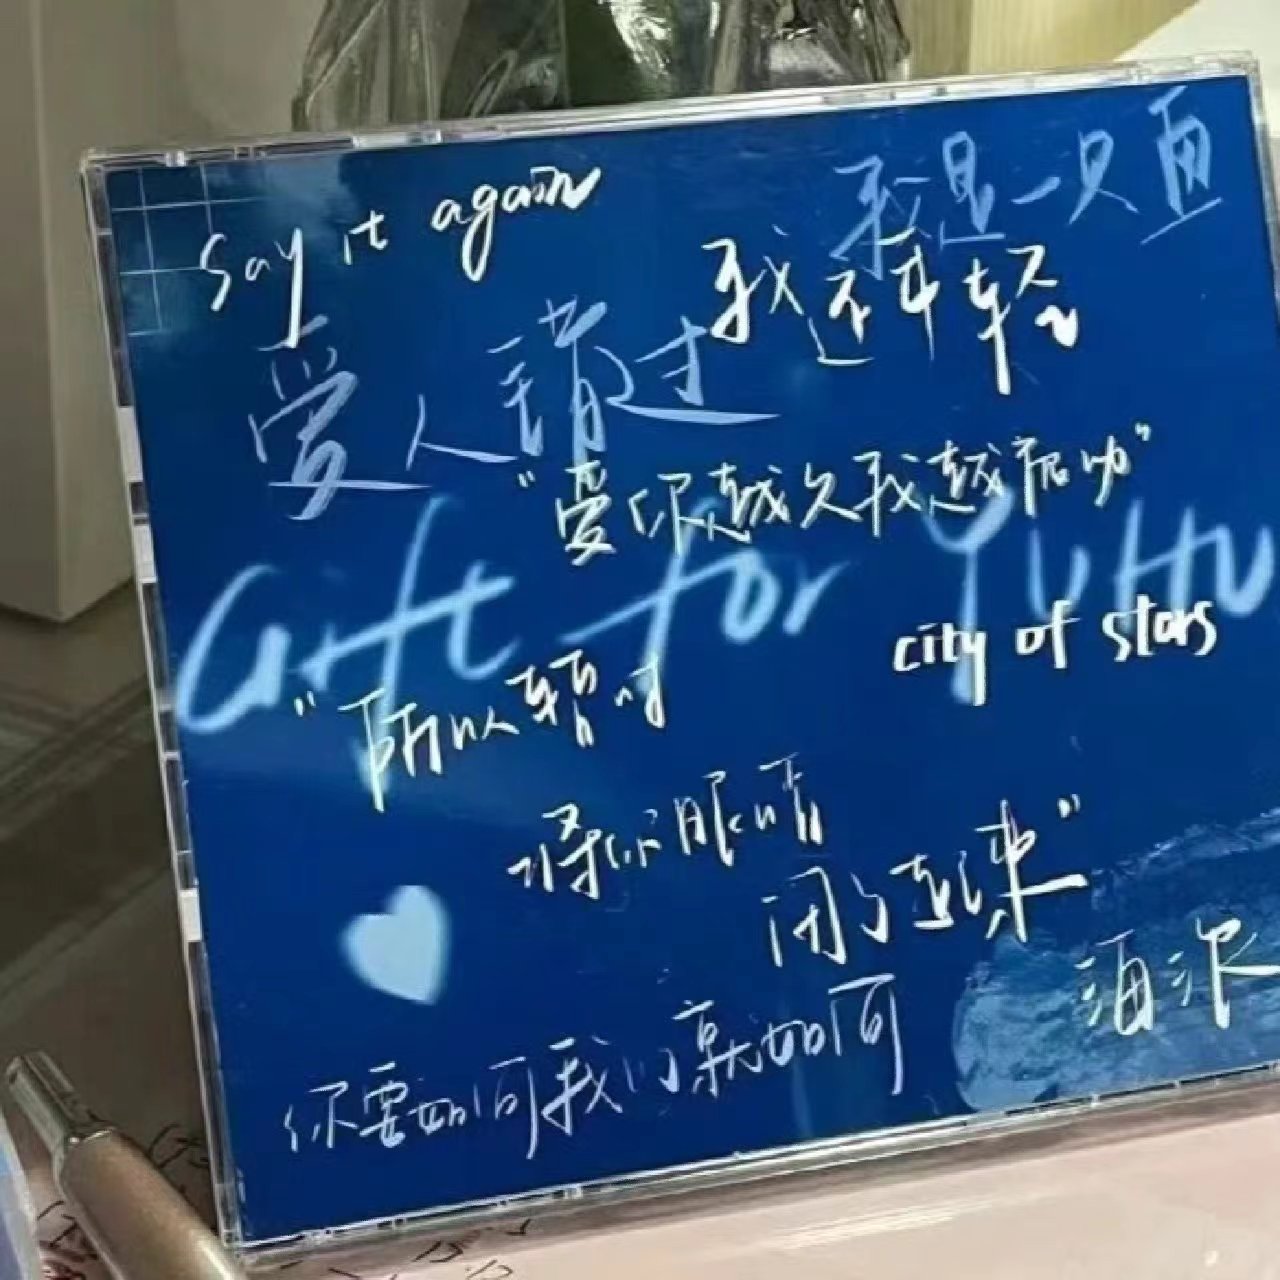 say it again
我是一只鱼
我还年轻
爱人错过
"爱你越久我越被动"
Gift for YUHU
city of stars
"所以暂时
将你眼睛
闭了起来"
海浪
你要如何我们就如何